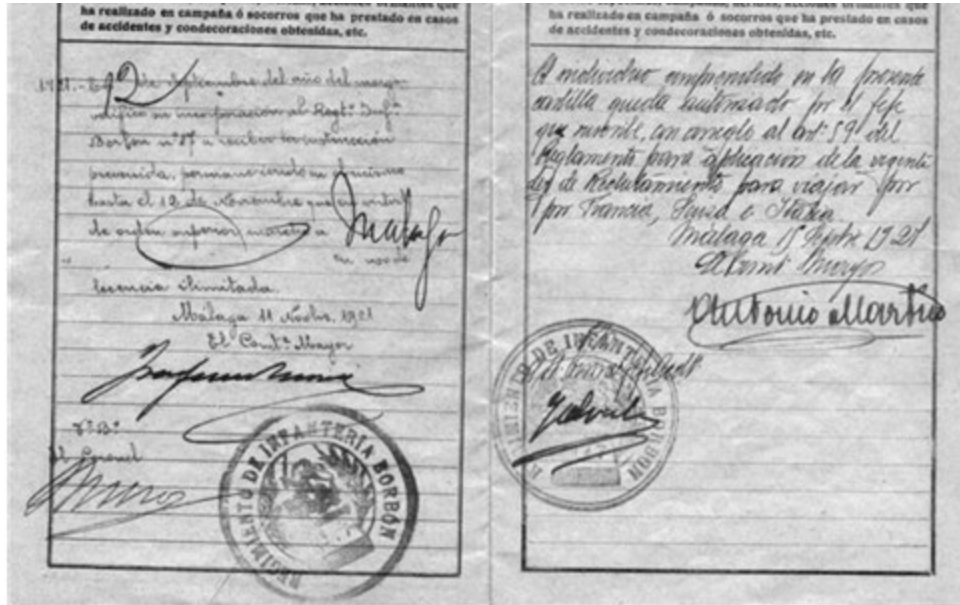 ha realizado en campaña ó socorros que ha prestado en casos
de accidentes y condecoraciones obtenidas, etc.
1921.- El 12 de Septiembre del año del margen
verificó su incorporación al Regt.º Inf.ª
Borbón n.º 17 a recibir la instrucción
prevenida, permaneciendo en
hasta el 12 de Noviembre que en virtud
de orden superior marchó a Malaga
en uso de
licencia ilimitada.
Málaga 11 Novbre. 1921
El Comt.e Mayor
V.º B.º
El Coronel
REGIMIENTO DE INFANTERÍA BORBÓN
ha realizado en campaña ó socorros que ha prestado en casos
de accidentes y condecoraciones obtenidas, etc.
El individuo comprendido en la presente
cartilla queda autorizado por el Jefe
que suscribe, con arreglo al art.º 59 del
Reglamento para aplicación de la vigente
ley de Reclutamiento para viajar por
por Francia, Suiza e Italia
Málaga 15 Septbre 1921
El Comt. Mayor
Antonio Martin
REGIMIENTO DE INFANTERIA BORBON